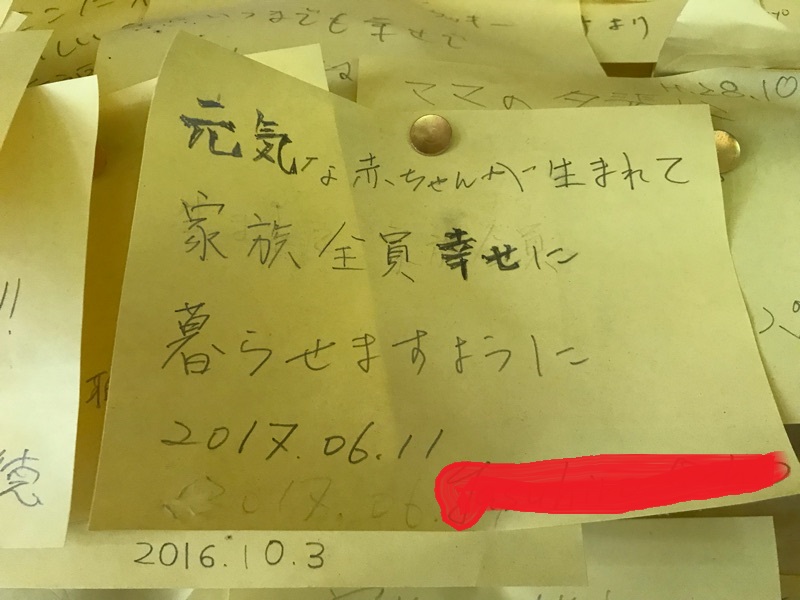 いつまでも幸せで
より
ママの
28.10
元気な赤ちゃんが生まれて
家族全員幸せに
暮らせますように
2017.06.11
2017.06.
!!
徳
2016.10.3